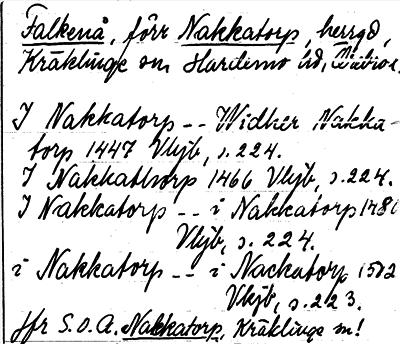 Falkenå, förr Nakkatorp, herrgd,
Kräklinge sn Hardemo hd,
I Nakkatorp -- Widher Nakka-
torp 1447 Vljb, s. 224.
I Nakkathorp 1466 Vljb, s. 224.
I Nakkatorp -- i Nakkatorp 1480
Vljb, s. 224.
i Nakkatorp -- i Nackatorp 1502
Vljb, s. 223.
Jfr S.O.A. Nakkatorp, Kräklinge sn!